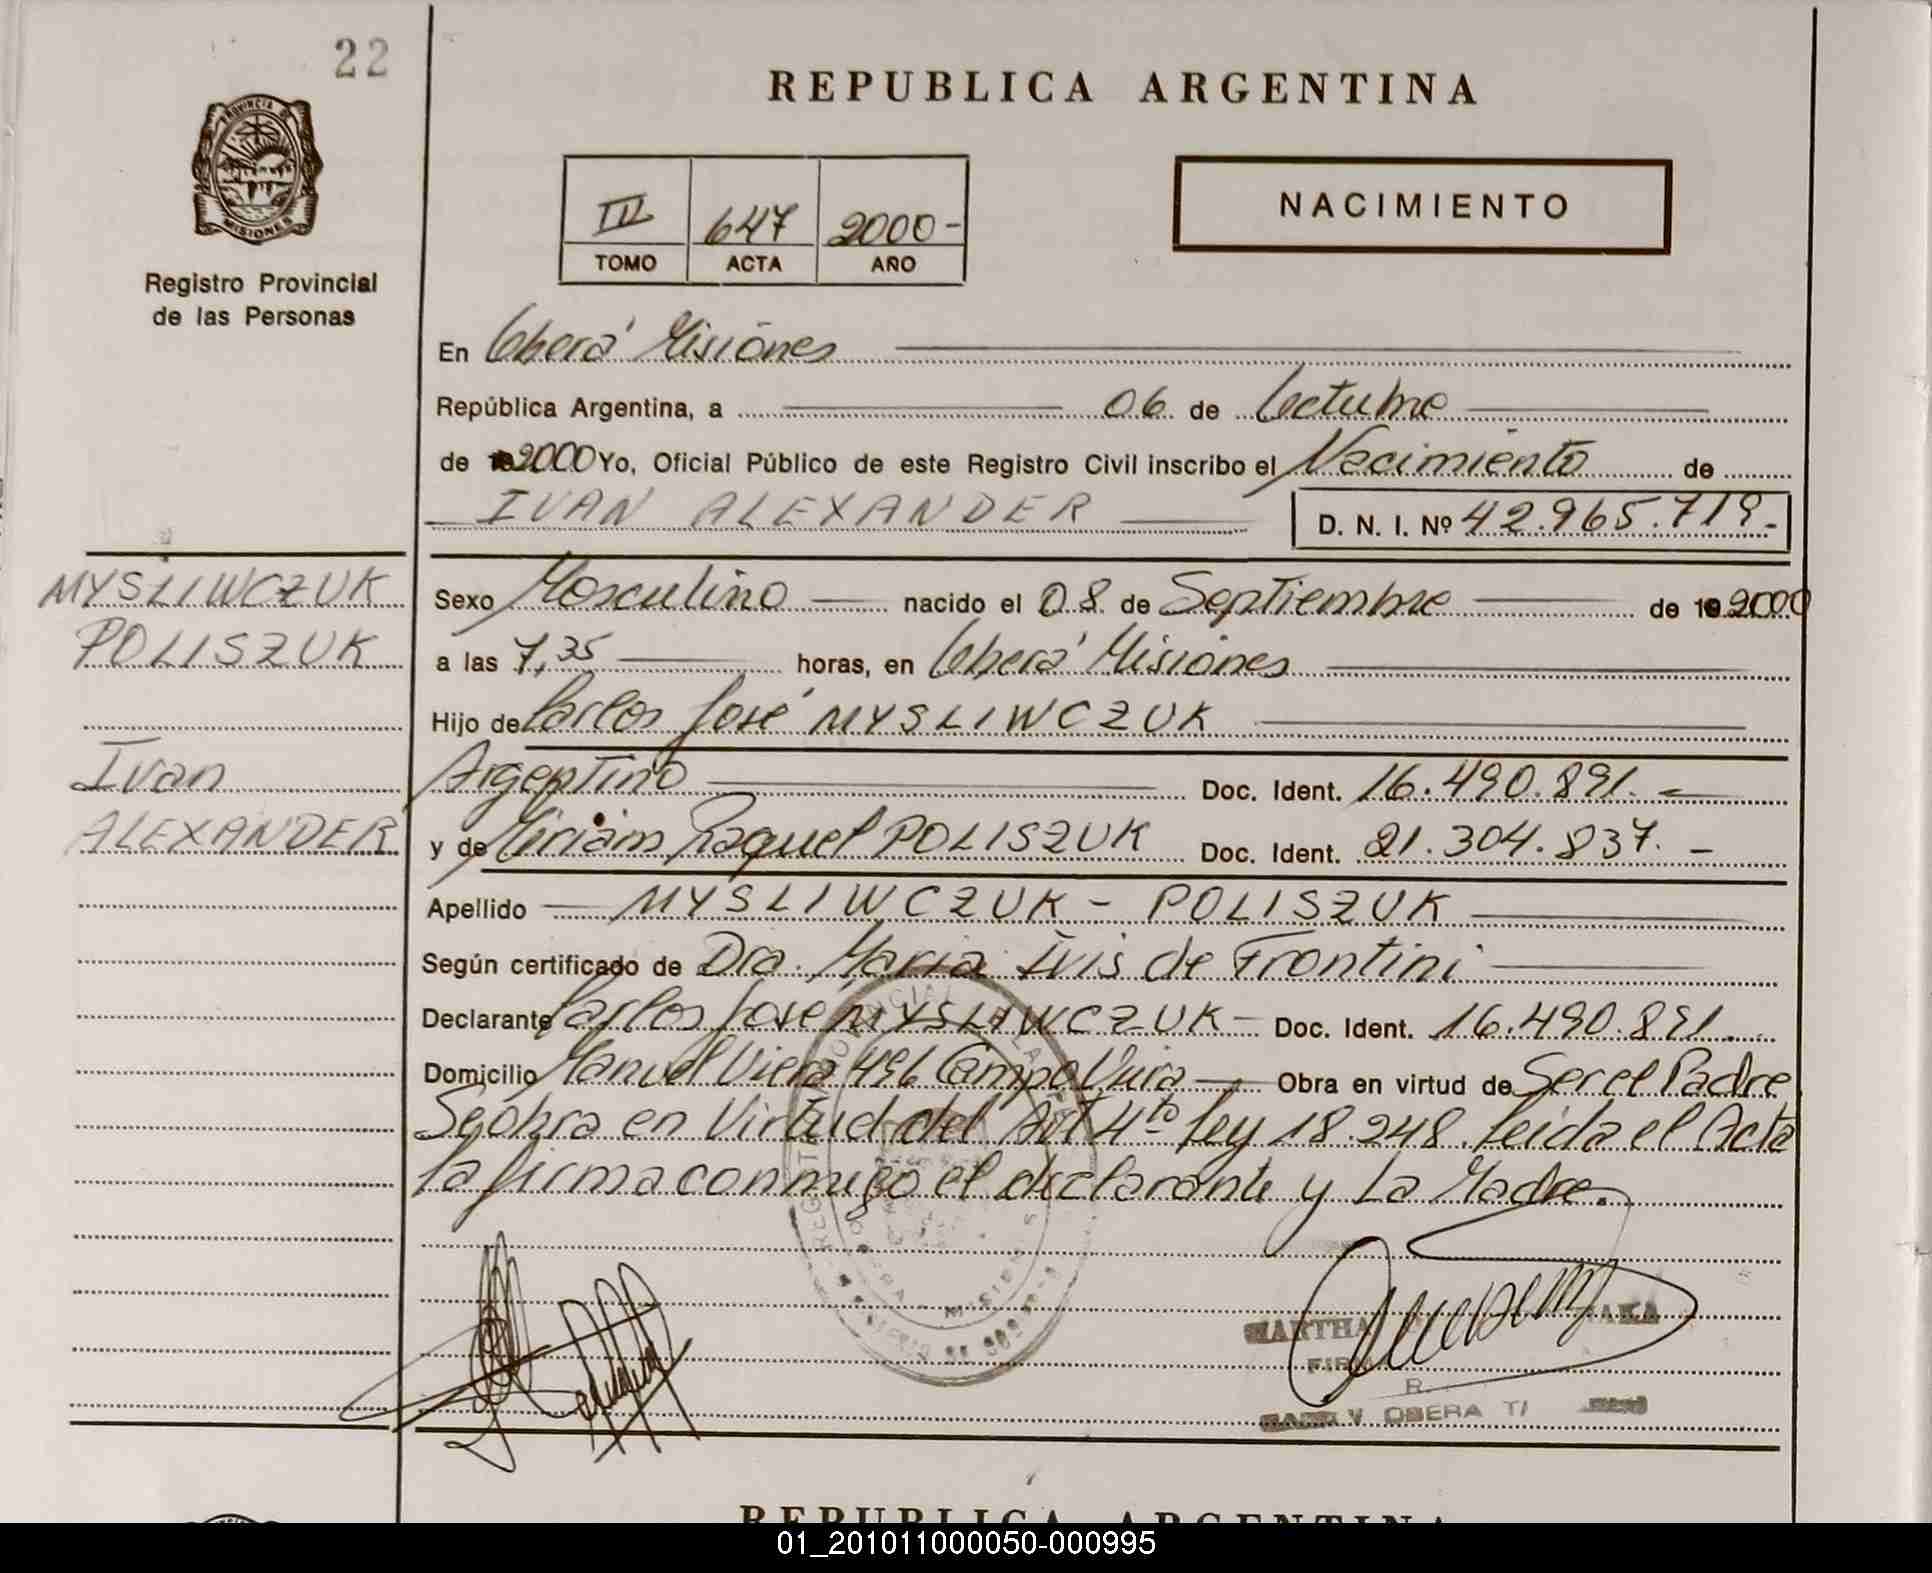 22
REPUBLICA ARGENTINA
PROVINCIA DE
MISIONES
Registro Provincial
de las Personas
III 647 2000-
TOMO ACTA AÑO
NACIMIENTO
En Oberá Misiones
República Argentina, a 06 de Octubre
de 2000 Yo, Oficial Público de este Registro Civil inscribo el Nacimiento de
IVAN ALEXANDER D. N. I. Nº 42.965.719.-
MYSLIWCZUK
POLISZUK
Ivan
ALEXANDER
Sexo Masculino nacido el 08 de Septiembre de 19 2000
a las 7,35 horas, en Oberá Misiones
Hijo de Carlos José MYSLIWCZUK
Argentino Doc. Ident. 16.490.891.-
y de Miriam Raquel POLISZUK Doc. Ident. 21.304.837.-
Apellido MYSLIWCZUK - POLISZUK
Según certificado de Dra. Maria Ivis de Frontini
Declarante Carlos José MYSLIWCZUK - Doc. Ident. 16.490.891.
Domicilio Manuel Viera 496 Campo Viera Obra en virtud de Ser el Padre
Se obra en Virtud del Art 4to ley 18.248. leida el Acta
la firma conmigo el declarante y La Madre.
MARTHA
OBERA
REPUBLICA ARGENTINA
01_201011000050-000995